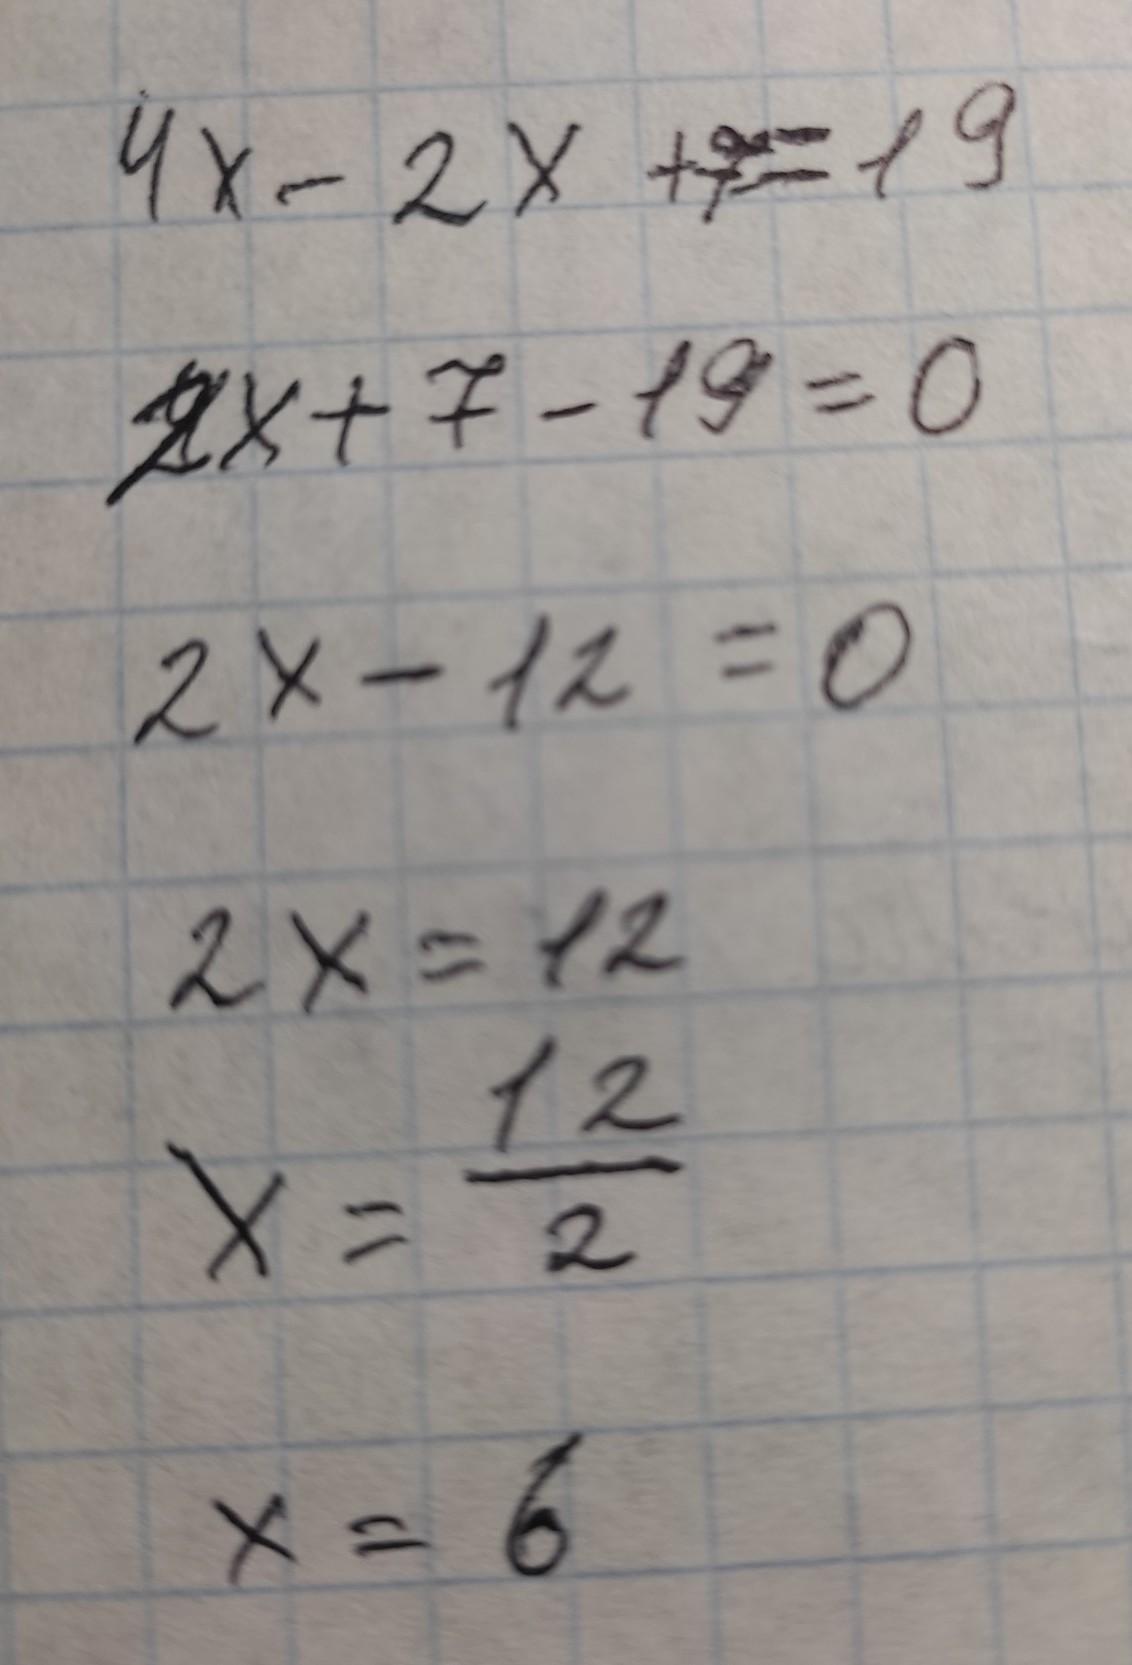 4x - 2x + 7 = 19
2x + 7 - 19 = 0
2x - 12 = 0
2x = 12
x = 12/2
x = 6